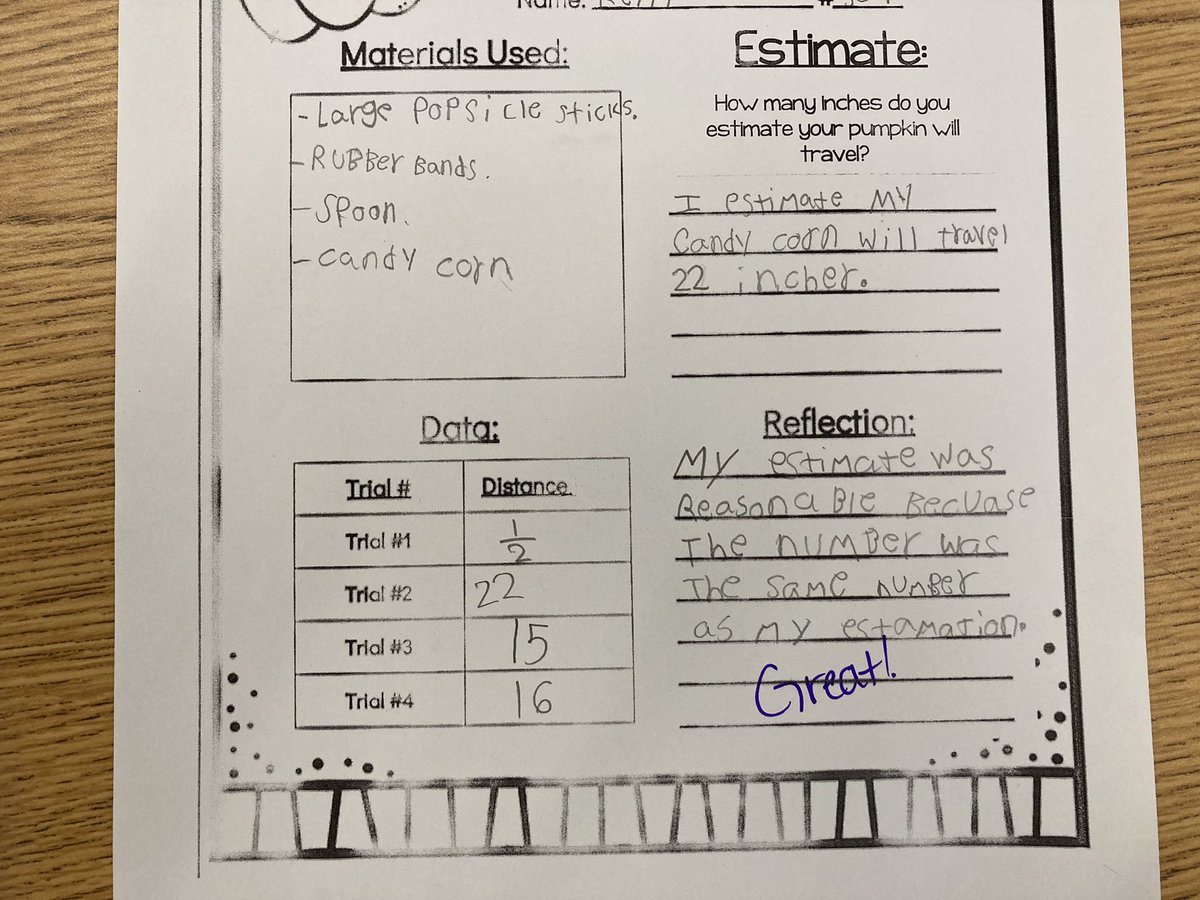 Name:
Materials Used:
- Large Popsicle sticks.
- RUBBer Bands.
- Spoon.
- candy corn
Estimate:
How many inches do you
estimate your pumpkin will
travel?
I estimate My
Candy corn will travel
22 incher.
Data:
Trial # Distance
Trial #1 1/2
Trial #2 22
Trial #3 15
Trial #4 16
Reflection:
My estimate was
ReasonaBle Becuase
The number was
The same numBer
as my estamation.
Great!